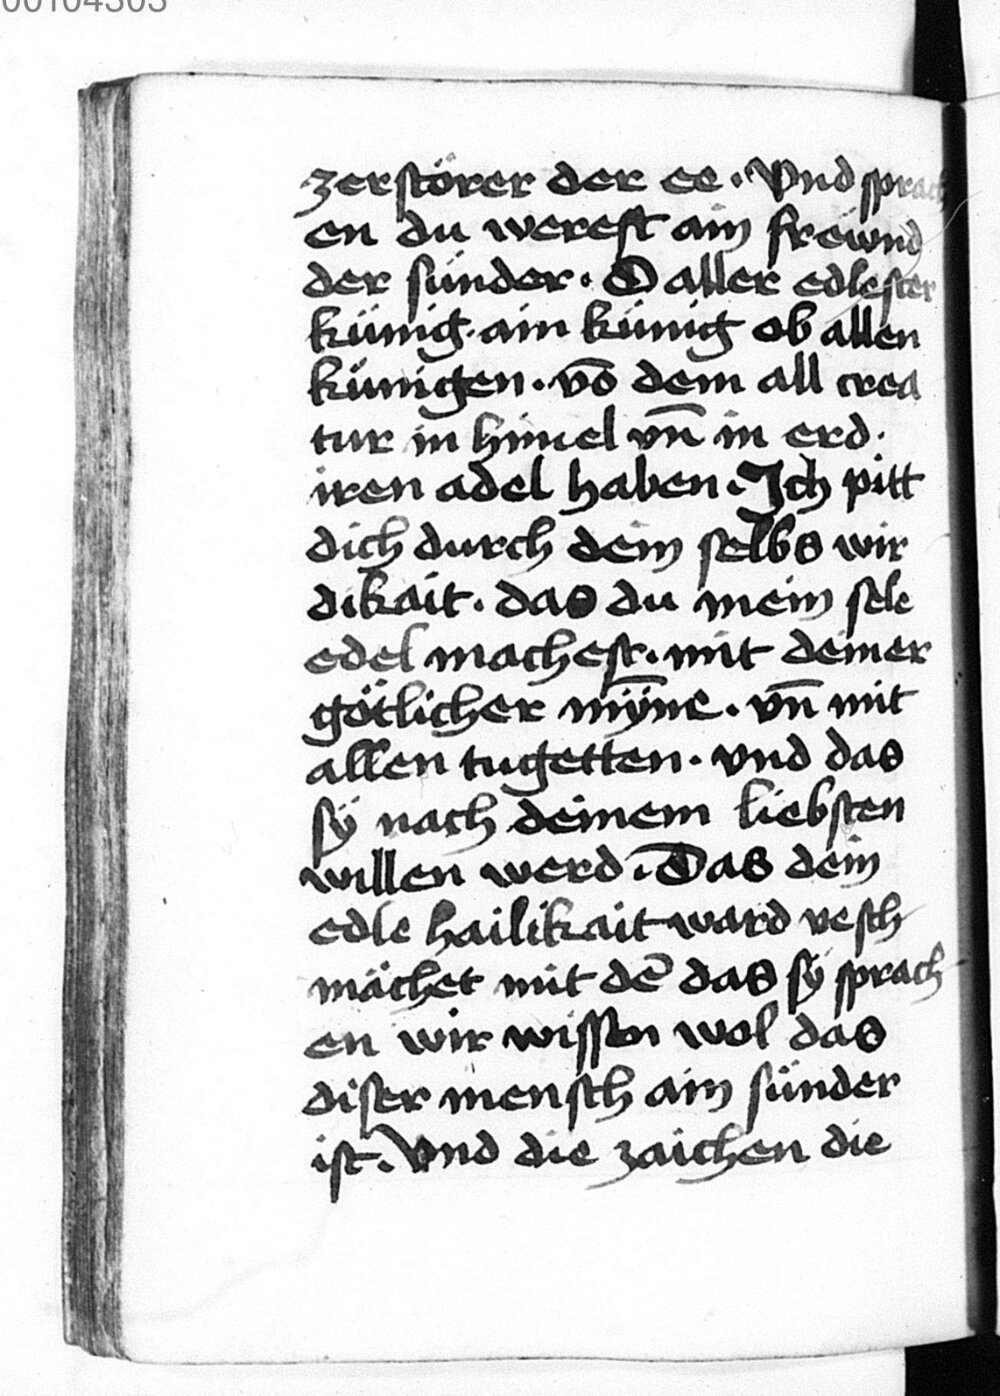 00104303
zerstörer der ee. Vnd sprach
en du werest ain freẃnd
der sünder. O aller edlester
künig. ain künig ob allen
künigen. vō dem all crea
tur in himel vn̄ in erd.
iren adel haben. Ich pitt
dich durch dein selbs wir
dikait. das du mein sele
edel machest. mit deiner
götlicher mӯne. vn̄ mit
allen tugetten. vnd das
sÿ nach deinem liebsten
willen werd. Das dein
edle hailikait ward vesch
mächet mit dē das sÿ sprach
en wir wissen wol das
diser mensch ain sünder
ist. Vnd die zaichen die